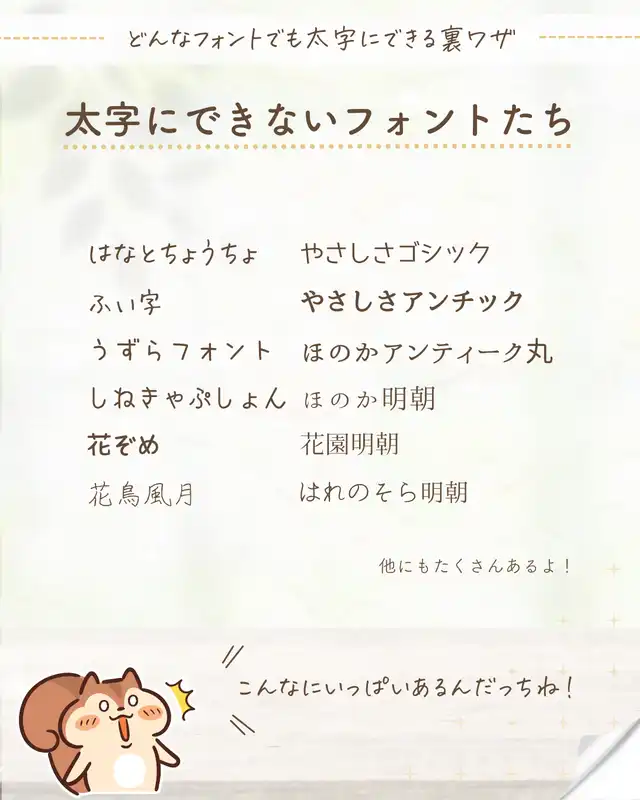 どんなフォントでも太字にできる裏ワザ
太字にできないフォントたち
はなとちょうちょ
ふい字
うずらフォント
しねきゃぷしょん
花ぞめ
花鳥風月
やさしさゴシック
やさしさアンチック
ほのかアンティーク丸
ほのか明朝
花園明朝
はれのそら明朝
他にもたくさんあるよ！
こんなにいっぱいあるんだっちね！